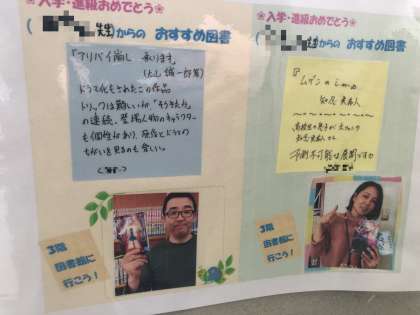 入学・進級おめでとう
先生)からの おすすめ図書
『アリバイ崩し 承ります』
(大山 誠一郎 著)
ドラマ化もされたこの作品
トリックは難しいが、
の連続。登場人物のキャラクター
も個性があり、原作とドラマの
ちがいを見るのも楽しい。
3階
図書館に
行こう!
入学・進級おめでとう
先生)からの おすすめ図書
『ムゲンのi』
知念 実希人
予測不可能な展開ですよ
3階
図書館に
行こう!